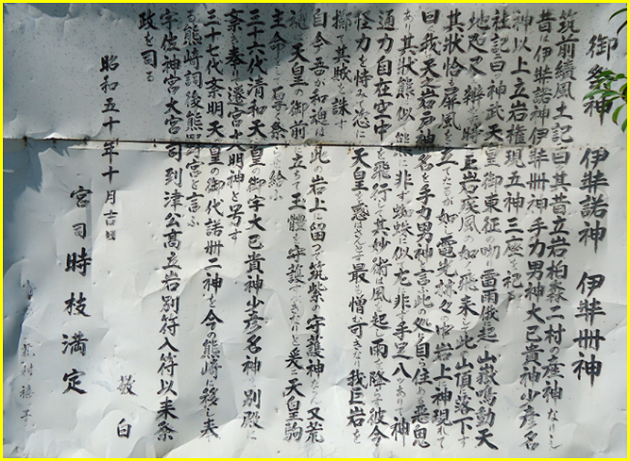 御多神 伊弉諾神 伊弉冊神
筑前續風土記曰其昔立岩柏森二村の産神なりし
昔は伊弉諾神伊弉冊神手力男神大己貴神少彦名
神以上立岩権現五神三座を祀る
社記曰く神武天皇御東征の砌雷雨俄起山嶽鳴動天
地咫尺を辨ぜず時に巨岩残風の如く飛来し此の山頂に落下す
其状恰も屏風を立てたるが如し電光赫々中岩上に神現れて
曰我天之岩戸神名を手力男神言此の処に自ら住める悪鬼
あり其状熊に似て熊に非ず蜘蛛に似て尤も非ず手足八ツありて神
通力自在空中を飛行して其妙術は風を起し雨を降らす彼今
怪力を恃みて恣に天皇を惑はさんとす最も憎む可きなり我巨岩を
擲て其賊を誅す
自今吾が和魂は此の岩上に留つて筑紫の守護神たらん又荒
魂は天皇の御前に立ちて玉體を守護せんとのたまひき爰に天皇駒
主命をして厚く祭らせ給ふ
三十六代清和天皇の御宇大己貴神少彦名神を別殿に
斎き奉り遷宮十八明神と号す
三十七代斎明天皇の御代諾冊二神を今の熊崎に移し奉
る熊崎詞後熊野宮と言ふ
宇佐神宮大宮司到津公高立岩別符入符以来祭
政を司る
昭和五十年十月吉日
敬白
宮司時枝満定